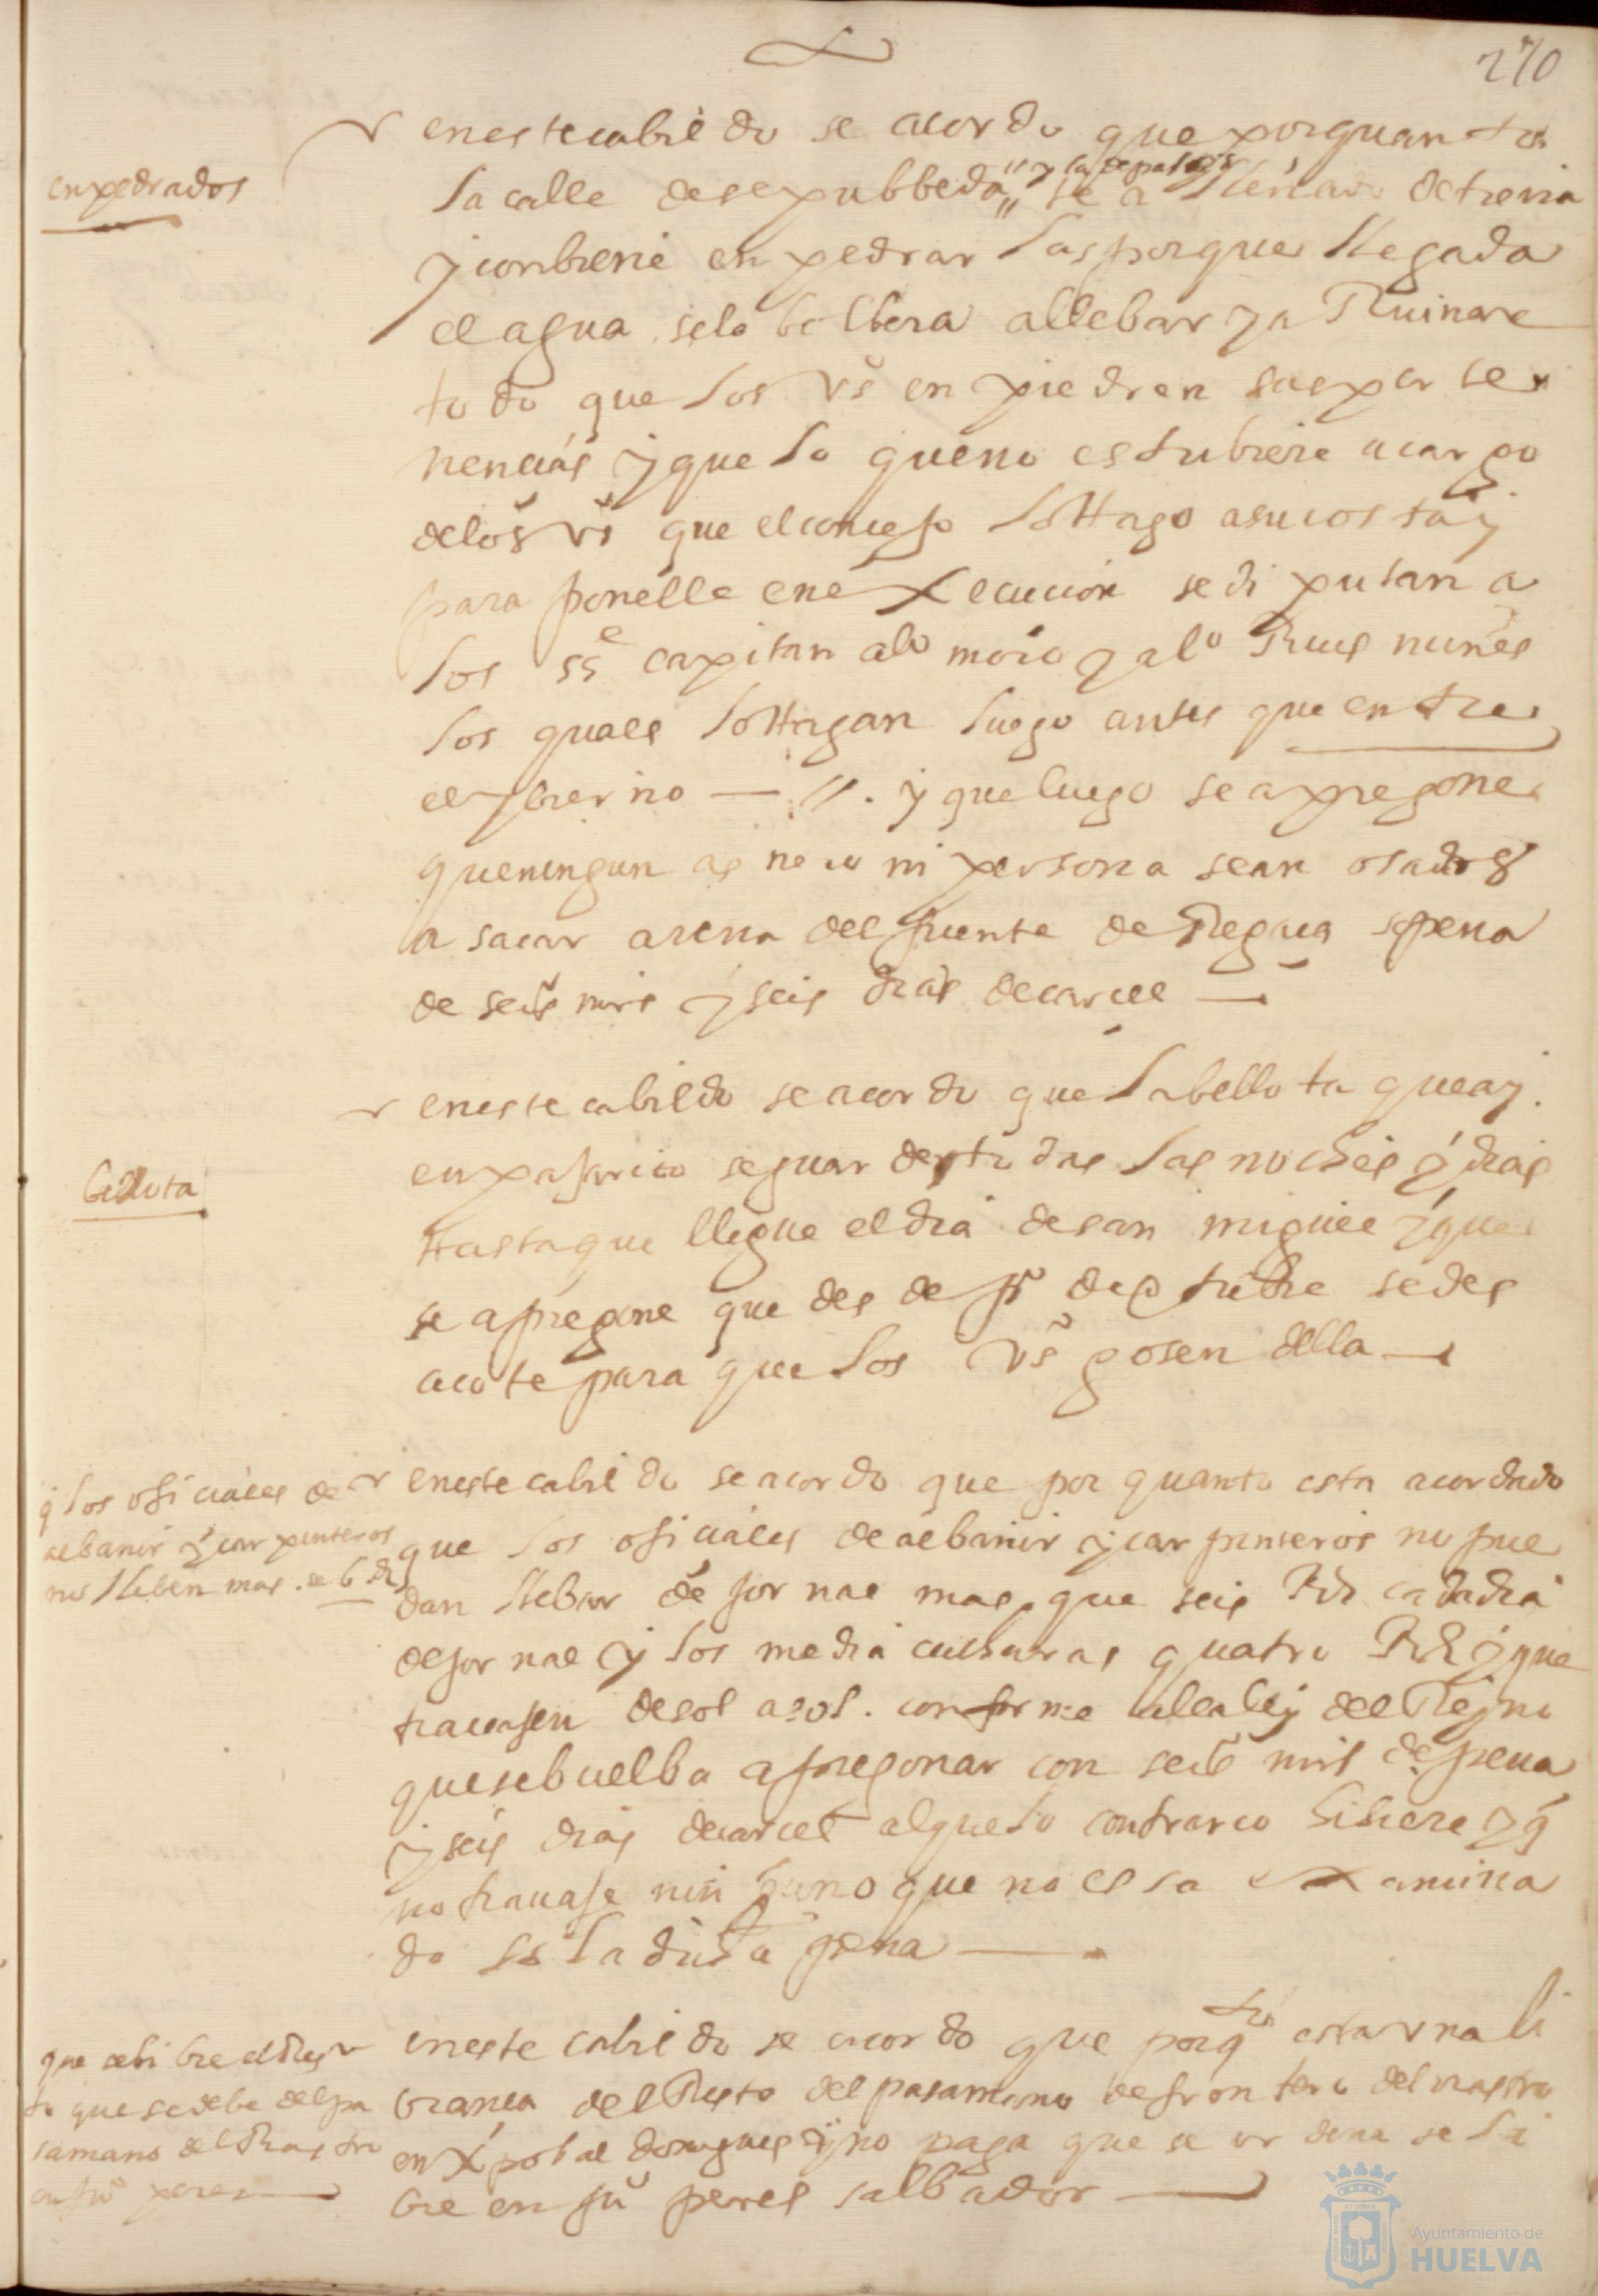 270
eneste cabildo se acordo que por quanto
enpedrados
la calle desepulbeda y la de palos se a llenado de tierra
y conbiene enpedrarlas porque llegada
el agua se lo bolbera a llebar y a Ruinar
todo que los vs en piedren sus perte
nencias y que lo que no estubiere a cargo
de los vs que el concejo lo Haga a su costa y
para ponelle en eXecucion se diputan a
los ss capitan alo moro y alo Ruis nuñes
los quales lo Hagan luego antes que entre
el ybierno — // . y que luego se apregone
que ningun asnero ni persona sean osados
a sacar arena del puente de Regua so pena
de seis mrs y seis dias de carcel —
eneste cabildo se acordo que la bellota que ay
bellota
en pajarito se guarde todas las noches y dias
Hasta que llegue el dia de san miguel y que
se apregone que desde pro de otubre se des
acote para que los vs gosen della —
q los oficiales de
albañir y carpinteros
no lleben mas de 6 Rs
eneste cabildo se acordo que por quanto esta acordado
que los oficiales de albanir y carpinteros no pue
dan llebar de jornal mas que seis Rs cada dia
de jornal y los media cucharas quatro Rs y que
trauajen de sol a sol conforme a la ley del Reyno
que se buelba a pregonar con seis mrs de pena
y seis dias de carcel al que lo contrario hiciere y q
no trauaje ninguno que no esta examina
do so la dicha pena —
que se libre el Res
to que se debe del pa
samano del Rastro
en ju peres —
eneste cabildo se acordo que porqto esta vna li
branca del Resto del pasamano de frontero del rastro
en Xpobal domgues y no paga que se ordena se li
bre en ju peres salbador —
Ayuntamiento de
HUELVA